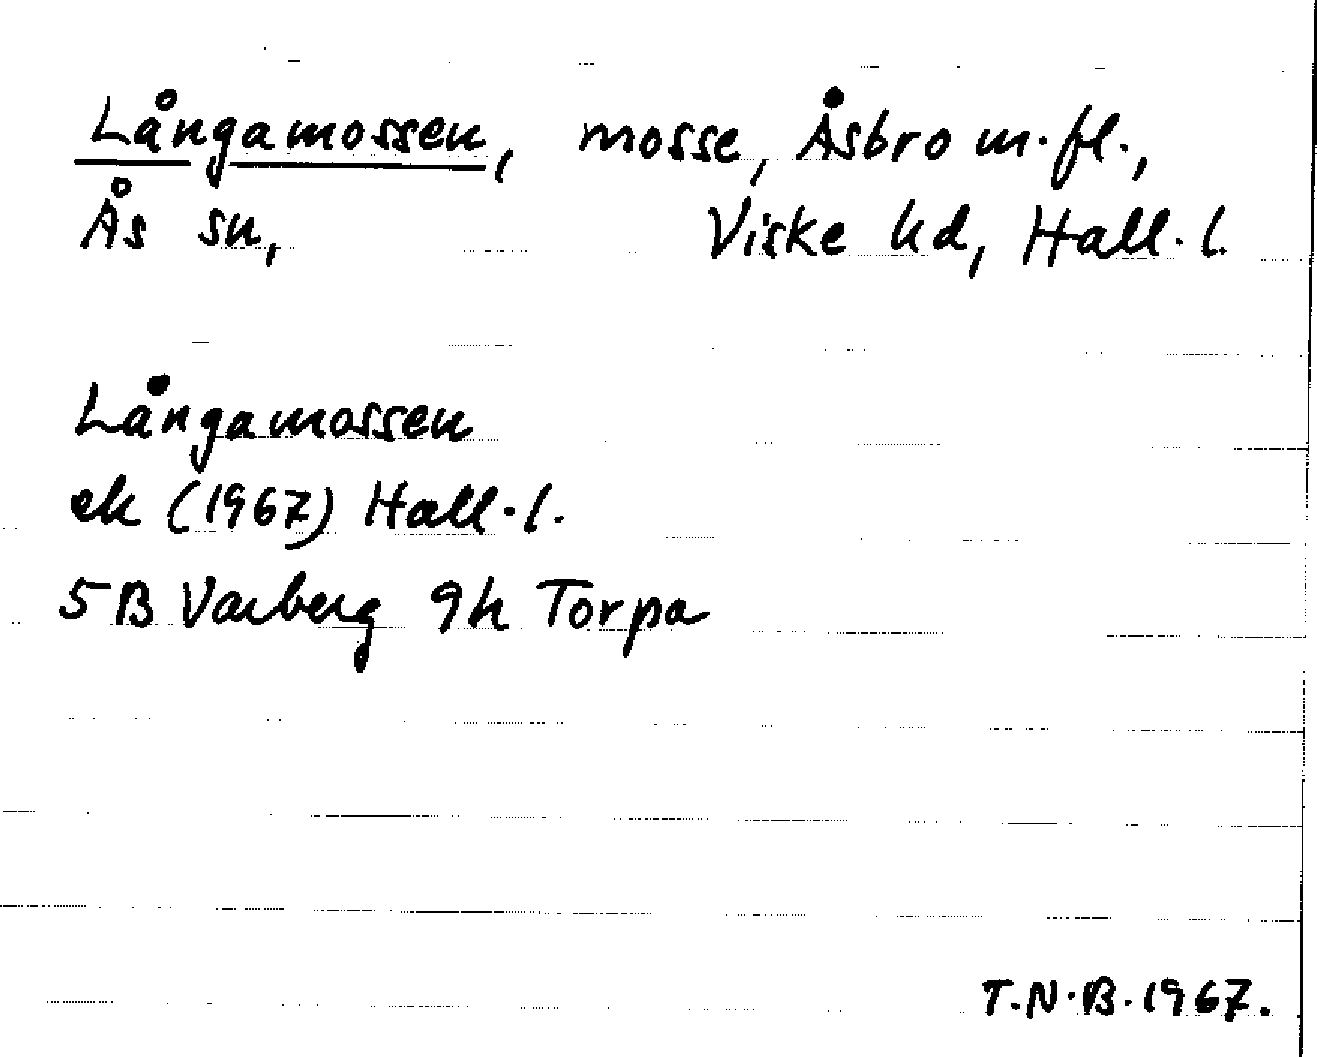 Långamossen, mosse, Åsbro m.fl.,
Ås sn, Viske hd, Hall.l.
Långamossen
ek (1967) Hall.l.
5B Varberg 9h Torpa
T.N.B.1967.